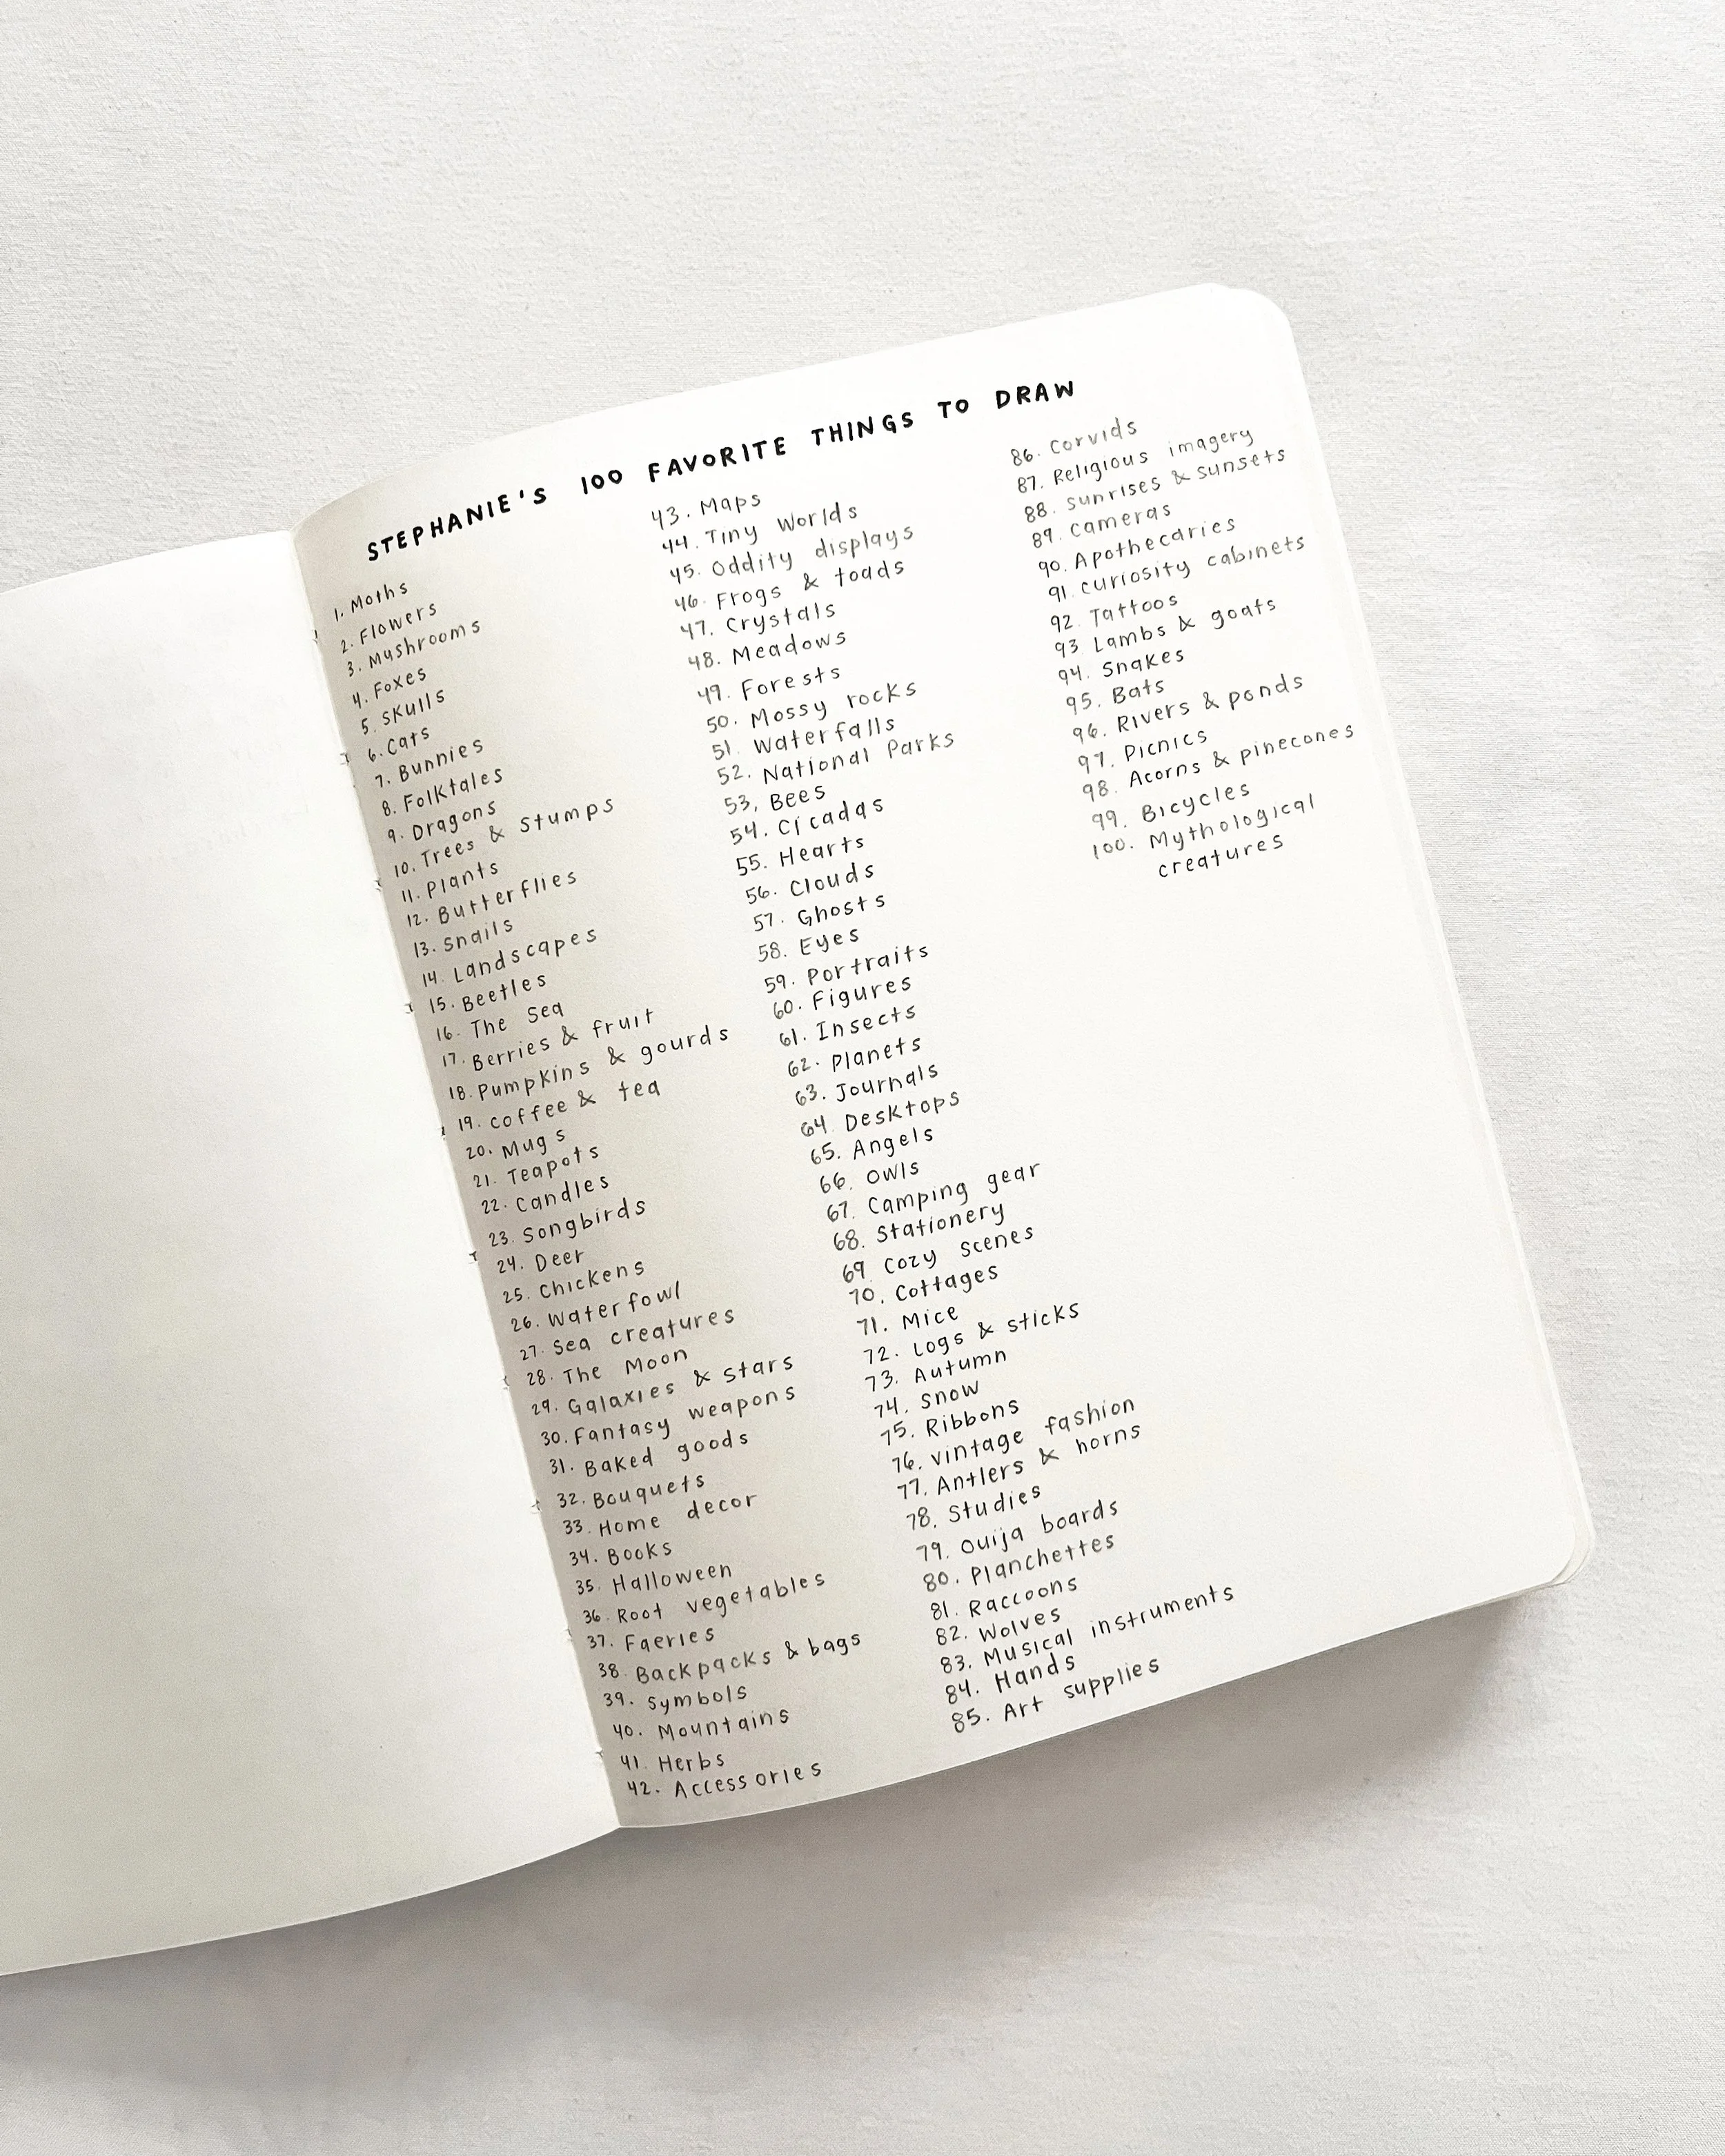 STEPHANIE'S 100 FAVORITE THINGS TO DRAW
1. Moths
2. Flowers
3. Mushrooms
4. Foxes
5. Skulls
6. Cats
7. Bunnies
8. Folktales
9. Dragons
10. Trees & stumps
11. Plants
12. Butterflies
13. Snails
14. Landscapes
15. Beetles
16. The Sea
17. Berries & fruit
18. Pumpkins & gourds
19. Coffee & tea
20. Mugs
21. Teapots
22. Candles
23. Songbirds
24. Deer
25. Chickens
26. Waterfowl
27. Sea creatures
28. The Moon
29. Galaxies & stars
30. Fantasy weapons
31. Baked goods
32. Bouquets
33. Home decor
34. Books
35. Halloween
36. Root vegetables
37. Faeries
38. Backpacks & bags
39. Symbols
40. Mountains
41. Herbs
42. Accessories
43. Maps
44. Tiny Worlds
45. Oddity displays
46. Frogs & toads
47. Crystals
48. Meadows
49. Forests
50. Mossy rocks
51. Waterfalls
52. National Parks
53. Bees
54. Cicadas
55. Hearts
56. Clouds
57. Ghosts
58. Eyes
59. Portraits
60. Figures
61. Insects
62. Planets
63. Journals
64. Desktops
65. Angels
66. Owls
67. Camping gear
68. Stationery
69. Cozy scenes
70. Cottages
71. Mice
72. Logs & sticks
73. Autumn
74. Snow
75. Ribbons
76. Vintage fashion
77. Antlers & horns
78. Studies
79. Ouija boards
80. Planchettes
81. Raccoons
82. Wolves
83. Musical instruments
84. Hands
85. Art supplies
86. Corvids
87. Religious imagery
88. Sunrises & sunsets
89. Cameras
90. Apothecaries
91. Curiosity cabinets
92. Tattoos
93. Lambs & goats
94. Snakes
95. Bats
96. Rivers & ponds
97. Picnics
98. Acorns & pinecones
99. Bicycles
100. Mythological
creatures